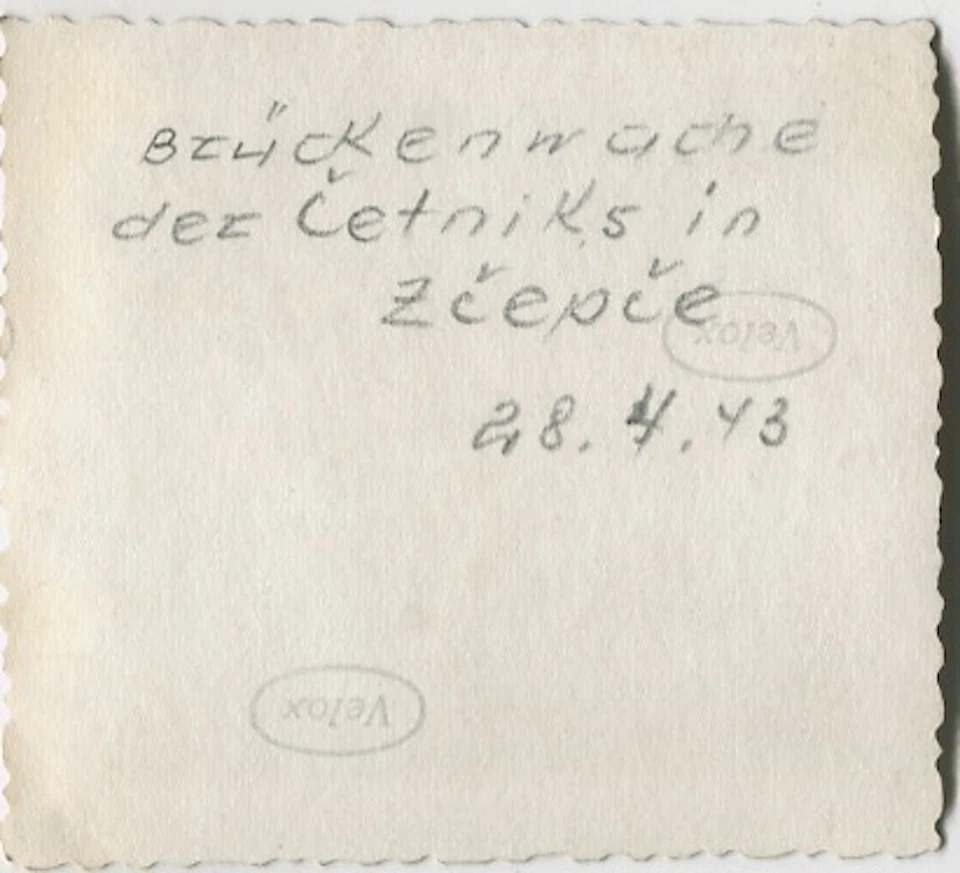 Brückenwache
der Četniks in
Zčepče
Velox
28.4.43
Velox